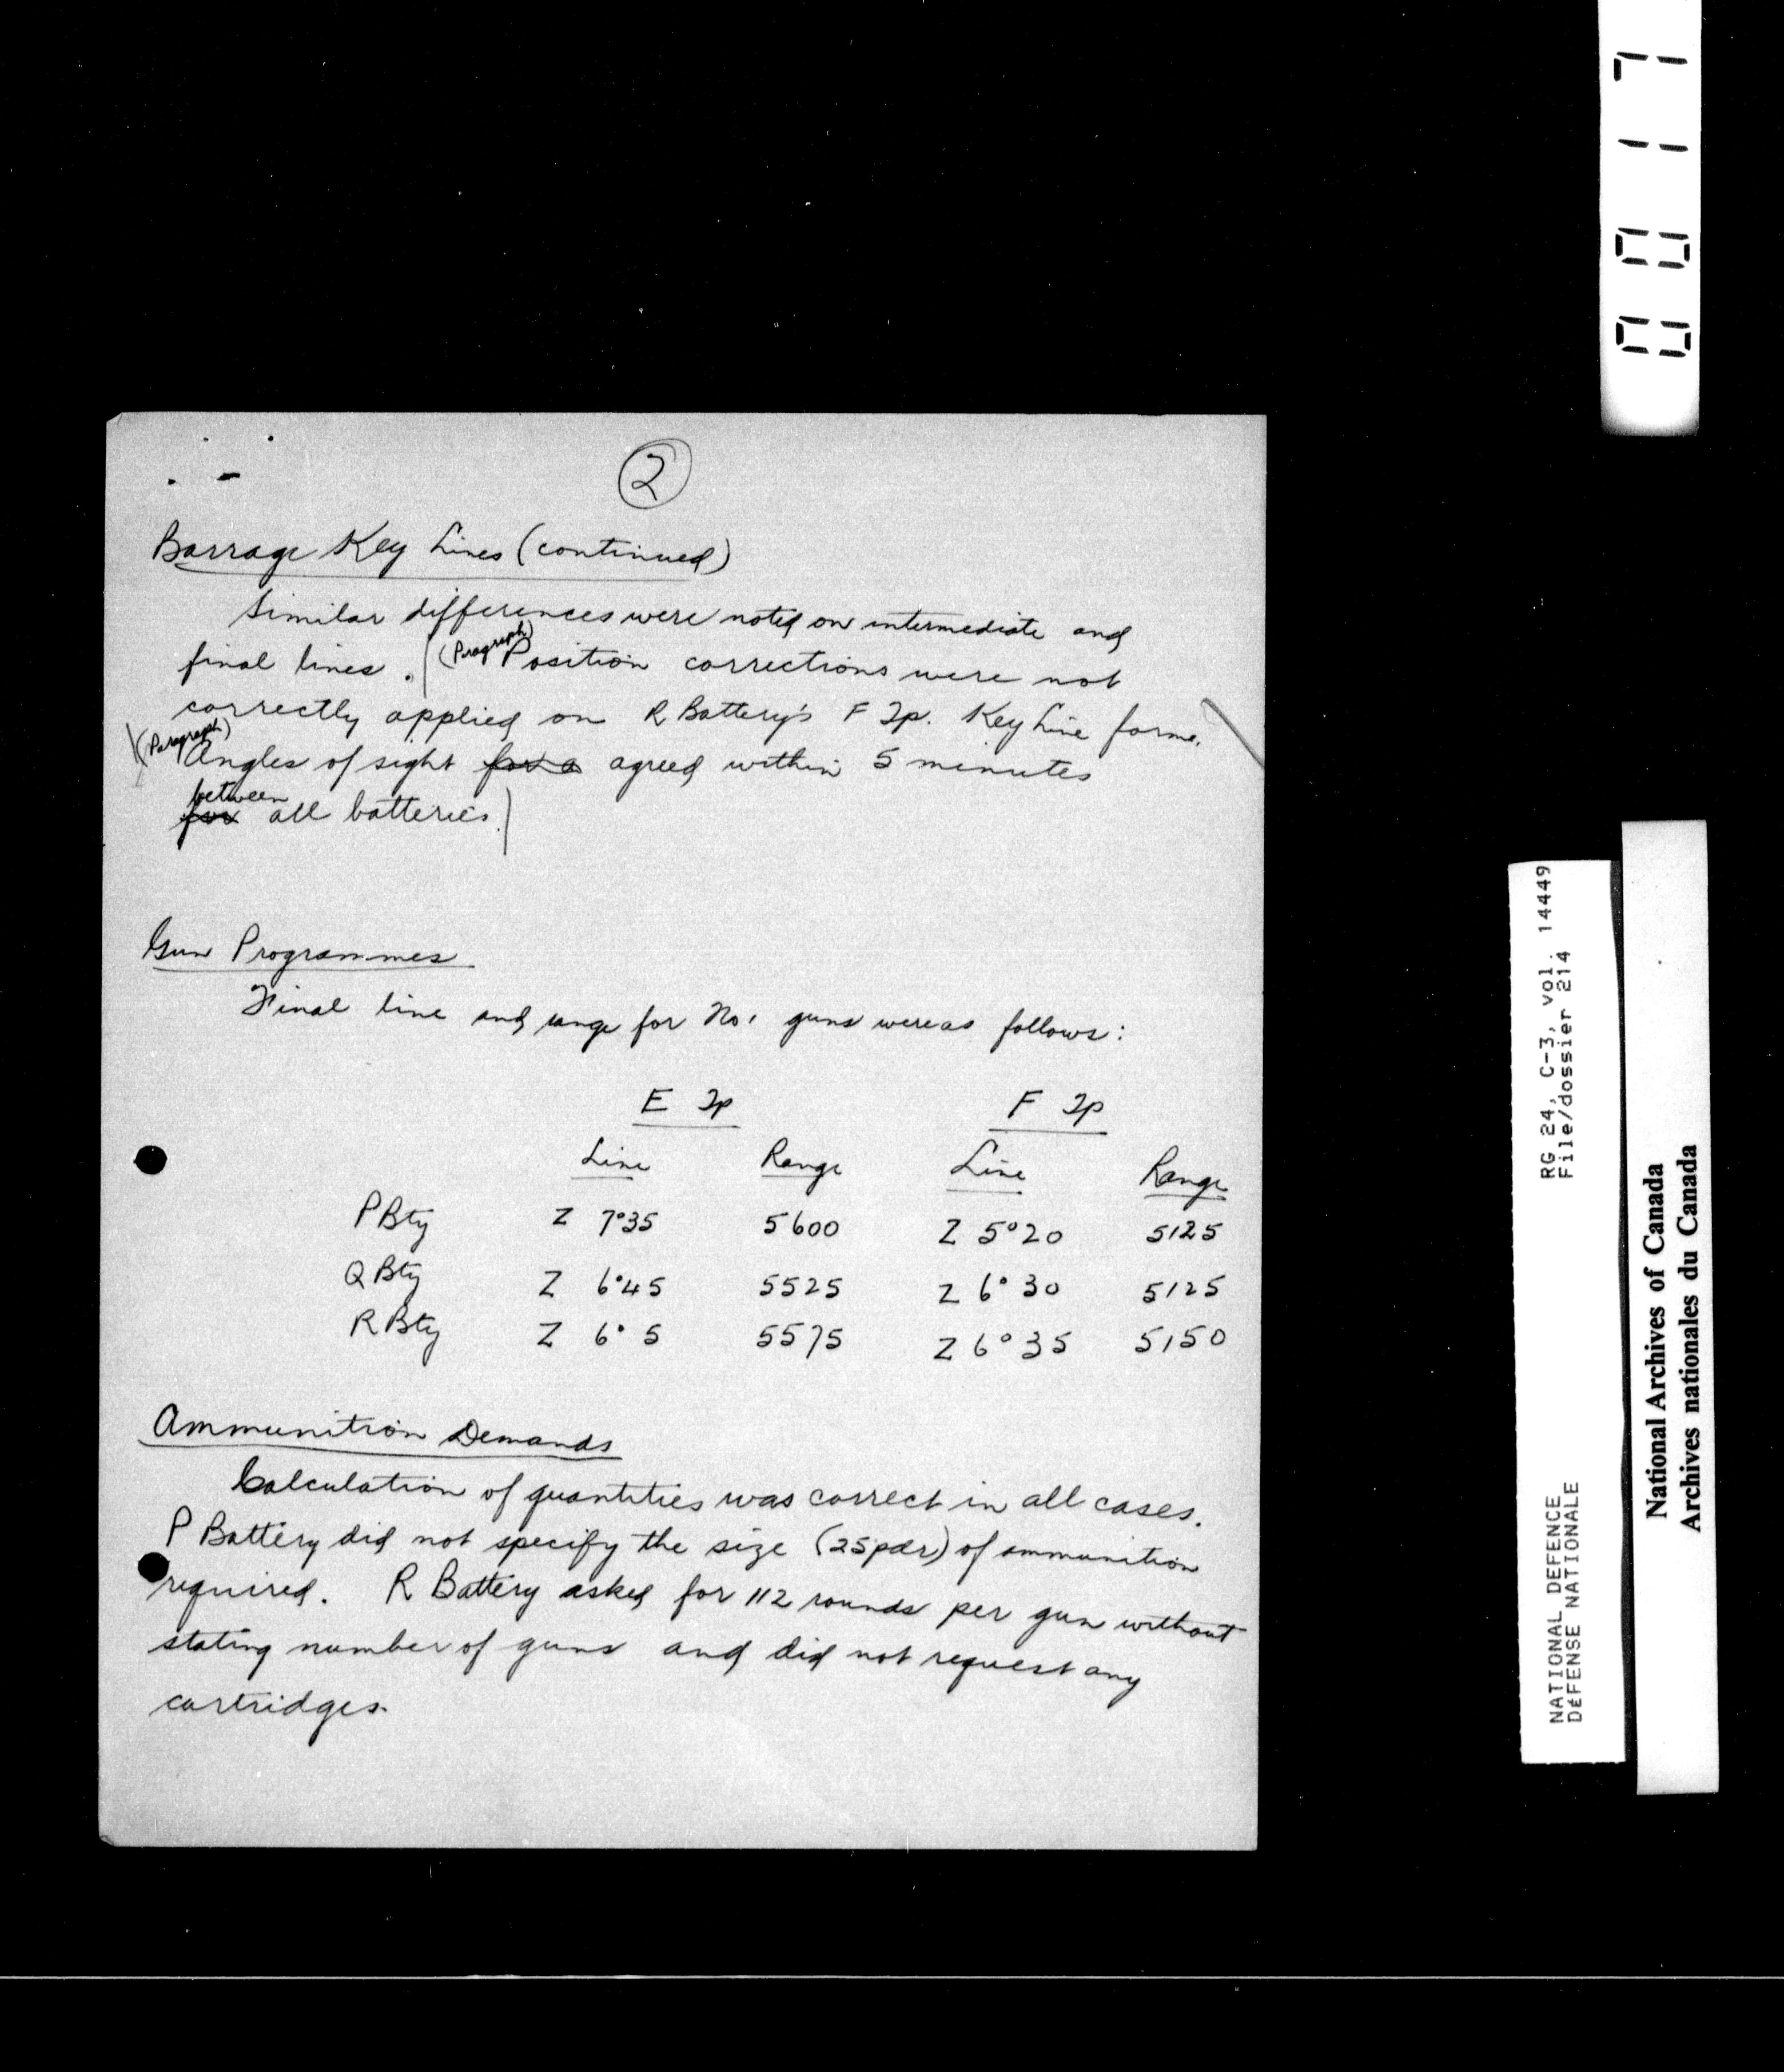 2
Barrage Key Lines (continued)
Similar differences were noted on intermediate and
final lines. (Pragraph) Position corrections were not
correctly applied on R Battery's F Tp. Key Line forme.
(Paragraph)
Angles of sight for a agreed within 5 minutes
between
for all batteries.
Gun Programmes
Final line and range for No 1 guns were as follows:
E Tp F Tp
Line Range Line Range
P Bty Z 7°35 5600 Z 5°20 5125
Q Bty Z 6°45 5525 Z 6°30 5125
R Bty Z 6°5 5575 Z 6°35 5150
Ammunition Demands
Calculation of quantities was correct in all cases.
P Battery did not specify the size (25 pdr) of ammunition
required. R Battery asked for 112 rounds per gun without
stating number of guns and did not request any
cartridges.
0017
RG 24, C-3, vol. 14449
File/dossier 214
NATIONAL DEFENCE
DÉFENSE NATIONALE
National Archives of Canada
Archives nationales du Canada